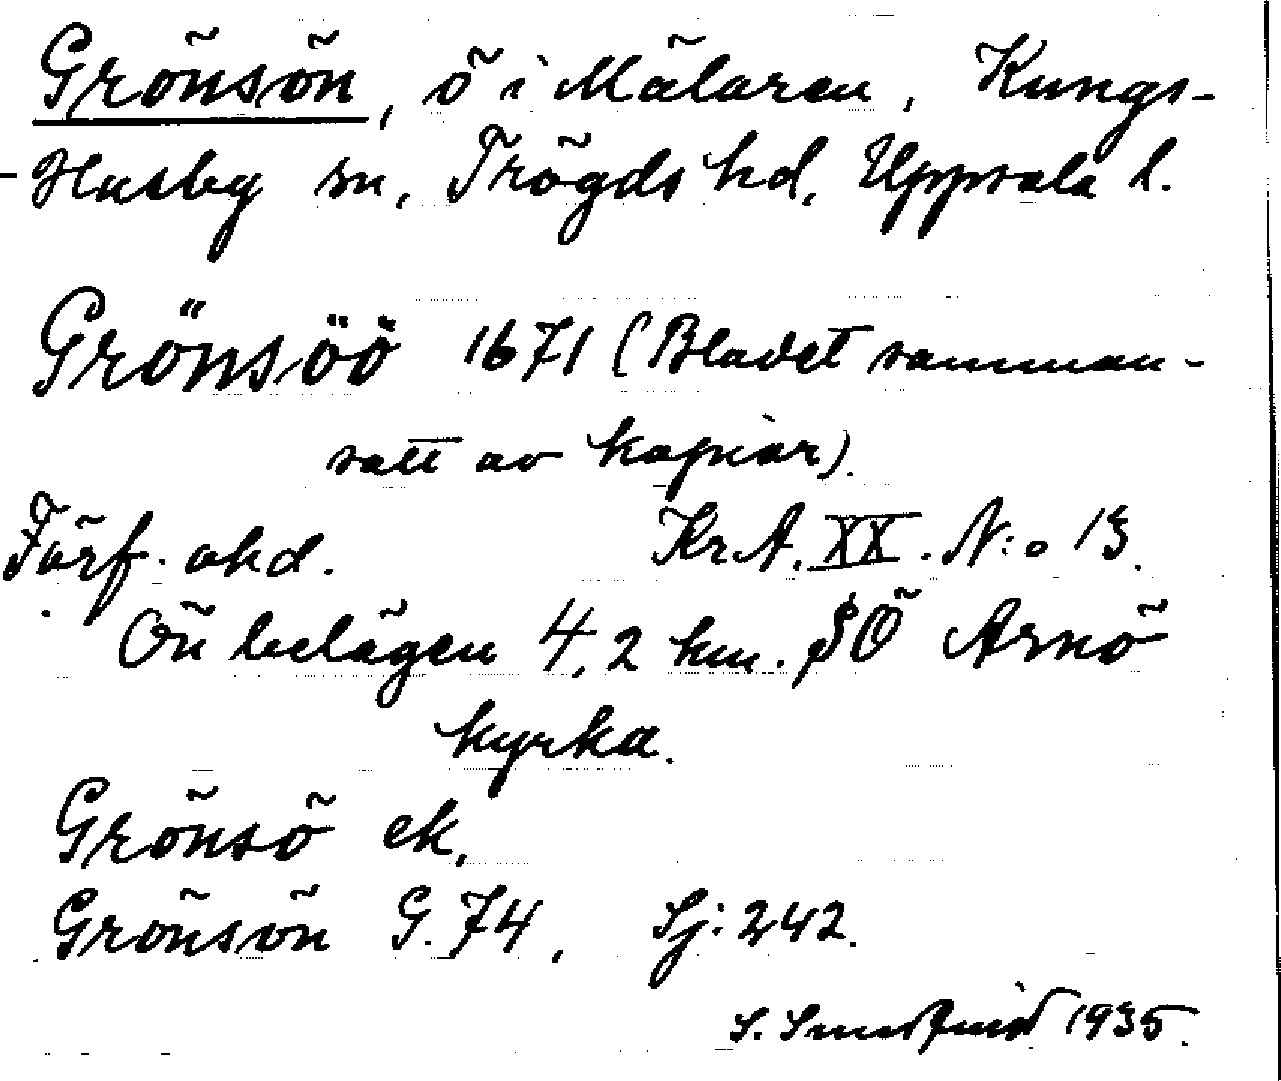 Grönsön, ö i Mälaren, Kungs-
-Husby sn, Trögds hd, Uppsala l.
Grönsöö 1671 (Bladet samman-
satt av kopior).
Förf. okd. Kr.A. XX. N:o 13.
Ön belägen 4,2 km. SÖ Arnö
kyrka.
Grönsö ek,
Grönsön G. 74, Sj: 242.
S. 1935.